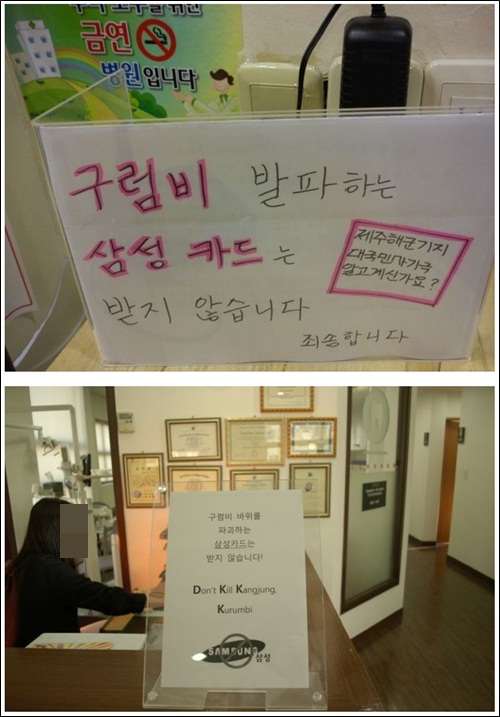 금연
병원입니다
구럼비 발파하는
삼성 카드는
받지 않습니다
죄송합니다
제주해군기지
대국민사기극
알고계신가요?
구럼비 바위를
파괴하는
삼성카드는
받지 않습니다!
Don't Kill Kangjung,
Kurumbi
SAMSUNG 삼성